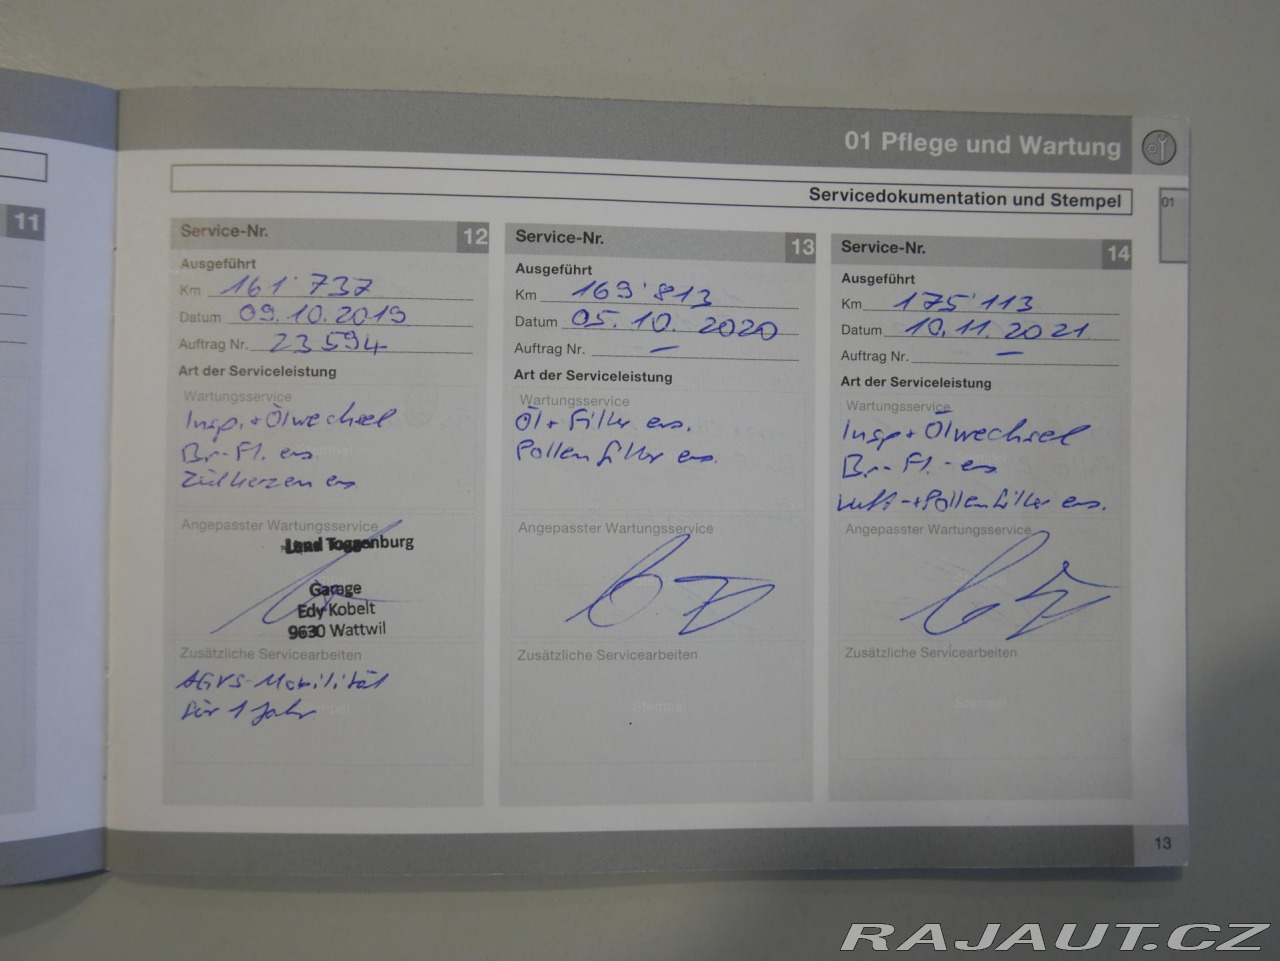 01 Pflege und Wartung
Servicedokumentation und Stempel
01
11
Service-Nr. 12
Ausgeführt
Km 161'737
Datum 09.10.2019
Auftrag Nr. 23594
Art der Serviceleistung
Wartungsservice
Insp. + Ölwechsel
Br.-Fl. ers
Zündkerzen ers
Angepasster Wartungsservice
Land Toggenburg
Garage
Edy Kobelt
9630 Wattwil
Zusätzliche Servicearbeiten
AGVS-Mobilität
für 1 Jahr
Service-Nr. 13
Ausgeführt
Km 169'813
Datum 05.10.2020
Auftrag Nr. —
Art der Serviceleistung
Wartungsservice
Öl + Filter ers.
Pollenfilter ers.
Angepasster Wartungsservice
Zusätzliche Servicearbeiten
Stempel
Service-Nr. 14
Ausgeführt
Km 175'113
Datum 10.11.2021
Auftrag Nr. —
Art der Serviceleistung
Wartungsservice
Insp + Ölwechsel
Br.-Fl.- ers
Luft-+Pollenfilter ers.
Angepasster Wartungsservice
Zusätzliche Servicearbeiten
Stempel
13
RAJAUT.CZ